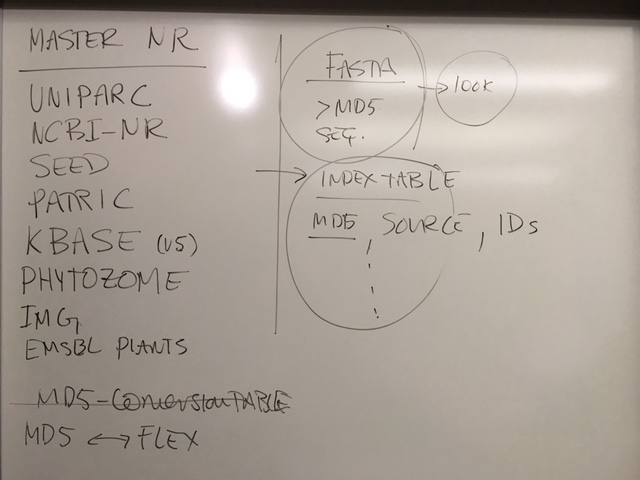 MASTER NR
UNIPARC
NCBI-NR
SEED
PATRIC
KBASE (v5)
PHYTOZOME
IMG
EMSBL PLANTS
MD5-ConversionTABLE
MD5 ↔ FLEX
FASTA
→ 100K
>MD5
SEQ.
→ INDEX TABLE
MD5, SOURCE, IDs